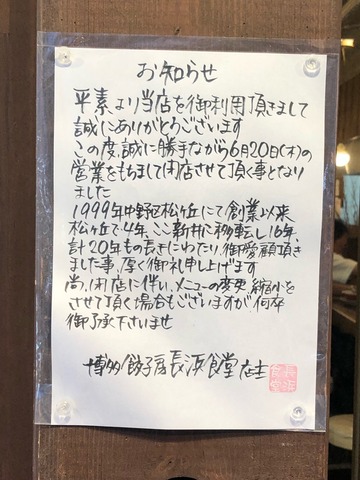 お知らせ
平素より当店を御利用頂きまして
誠にありがとうございます
この度、誠に勝手ながら6月20日(木)の
営業をもちまして閉店させて頂く事となり
ました
1999年中野区松ヶ丘にて創業以来
松ヶ丘で4年、ここ新井に移転し16年、
計20年もの長きにわたり、御愛顧頂き
ました事、厚く御礼申し上げます
尚、閉店に伴い、メニューの変更、縮小を
させて頂く場合もございますが何卒
御了承下さいませ
博多餃子房長浜食堂 店主
長浜
食堂